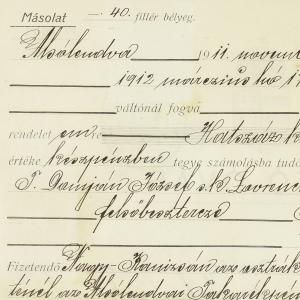 Másolat — 40. fillér bélyeg.
Alsólendva 1911. novem
1912 márczius hó 1
váltónál fogva
rendelet em Hatszáz k
értéke készpénzben tegye számolásba tud
T. Damján József s.k. Lovrenc
felsőbesztercze
Fizetendő Nagy-Kanizsán az osztrák
ténél az Alsólendvai Takarékpén